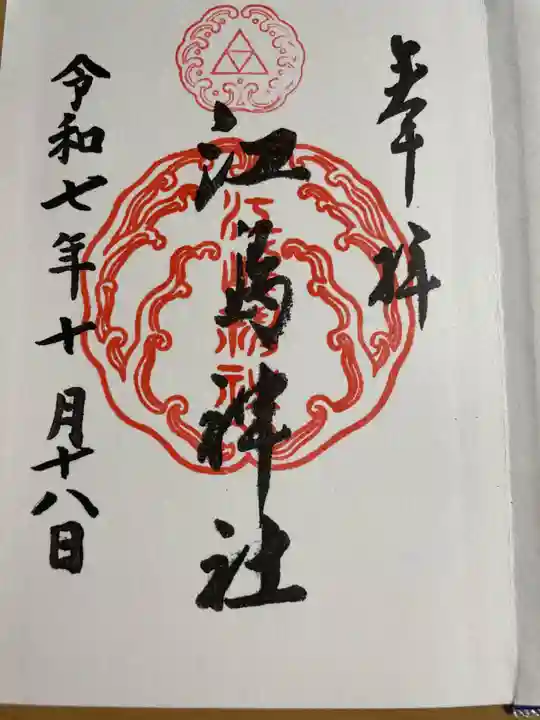 奉拝
江島神社
江島神社
令和七年十月十八日